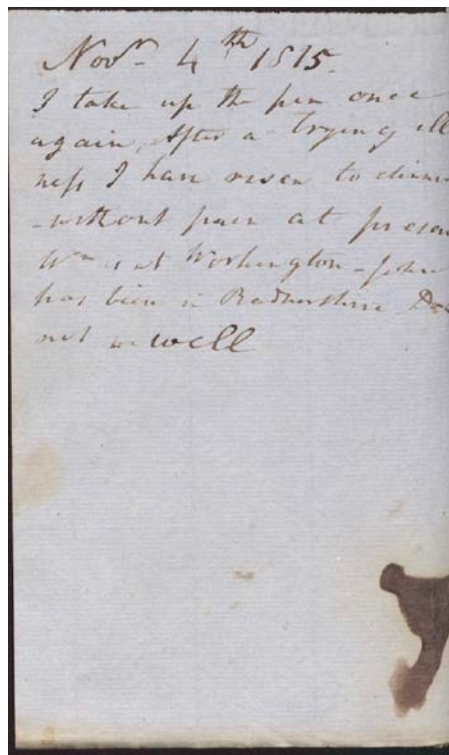 Novr. 4th 1815.
I take up the pen once
again, After a trying ill
ness I have risen to dinner
- without pain at presen
Wm is at Workington - John
has been in Radnorshire
not well